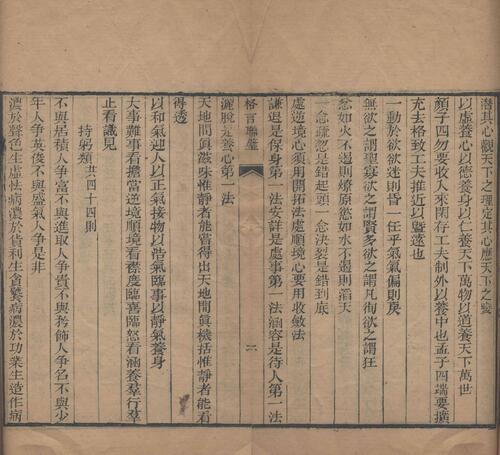 潛其心觀天下之理定其心應天下之變
以虛養心以德養身以仁養天下萬物以道養天下萬世
顏子四勿要收入來閑存工夫制外以養中也孟子四端要擴
充去格致工夫推近以暨遠也
一動於欲欲迷則昏一任乎氣氣偏則戾
無欲之謂聖寡欲之謂賢多欲之謂凡徇欲之謂狂
忿如火不遏則燎原慾如水不遏則滔天
一念疏忽是錯起頭一念決裂是錯到底
處逆境心須用開拓法處順境心要用收斂法
謙退是保身第一法安詳是處事第一法涵容是待人第一法
格言聯璧
二
灑脫是養心第一法
天地間真滋味惟靜者能嘗得出天地間真機括惟靜者能看
得透
以和氣迎人以正氣接物以浩氣臨事以靜氣養身
大事難事看擔當逆境順境看襟度臨喜臨怒看涵養羣行羣
止看識見
持躬類 共四十四則
不與居積人爭富不與進取人爭貴不與矜飾人爭名不與少
年人爭英俊不與盛氣人爭是非
濃於聲色生虛怯病濃於貨利生貪饕病濃於功業生造作病